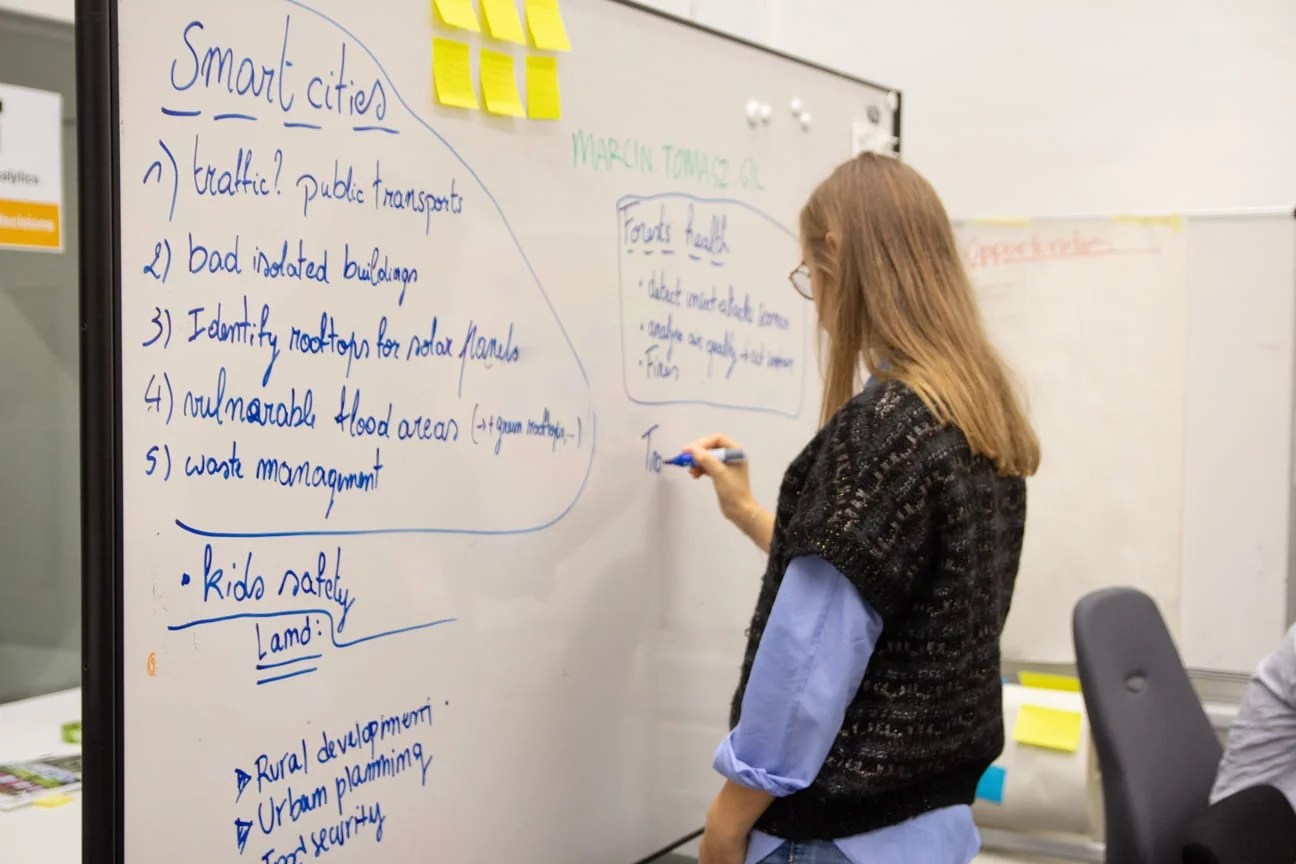 Smart cities
1) traffic? public transports
2) bad isolated buildings
3) Identify rooftops for solar panels
4) vulnarable flood areas (→+ green rooftops,..)
5) waste managment
• kids safety
Land:
Rural development
Urban planning
Food security
MARCIN.TOMASZ.GIL
Forests health
• detect insect attacks
• analyse air quality → act
• Fires
Tra
Opportunities
alytics